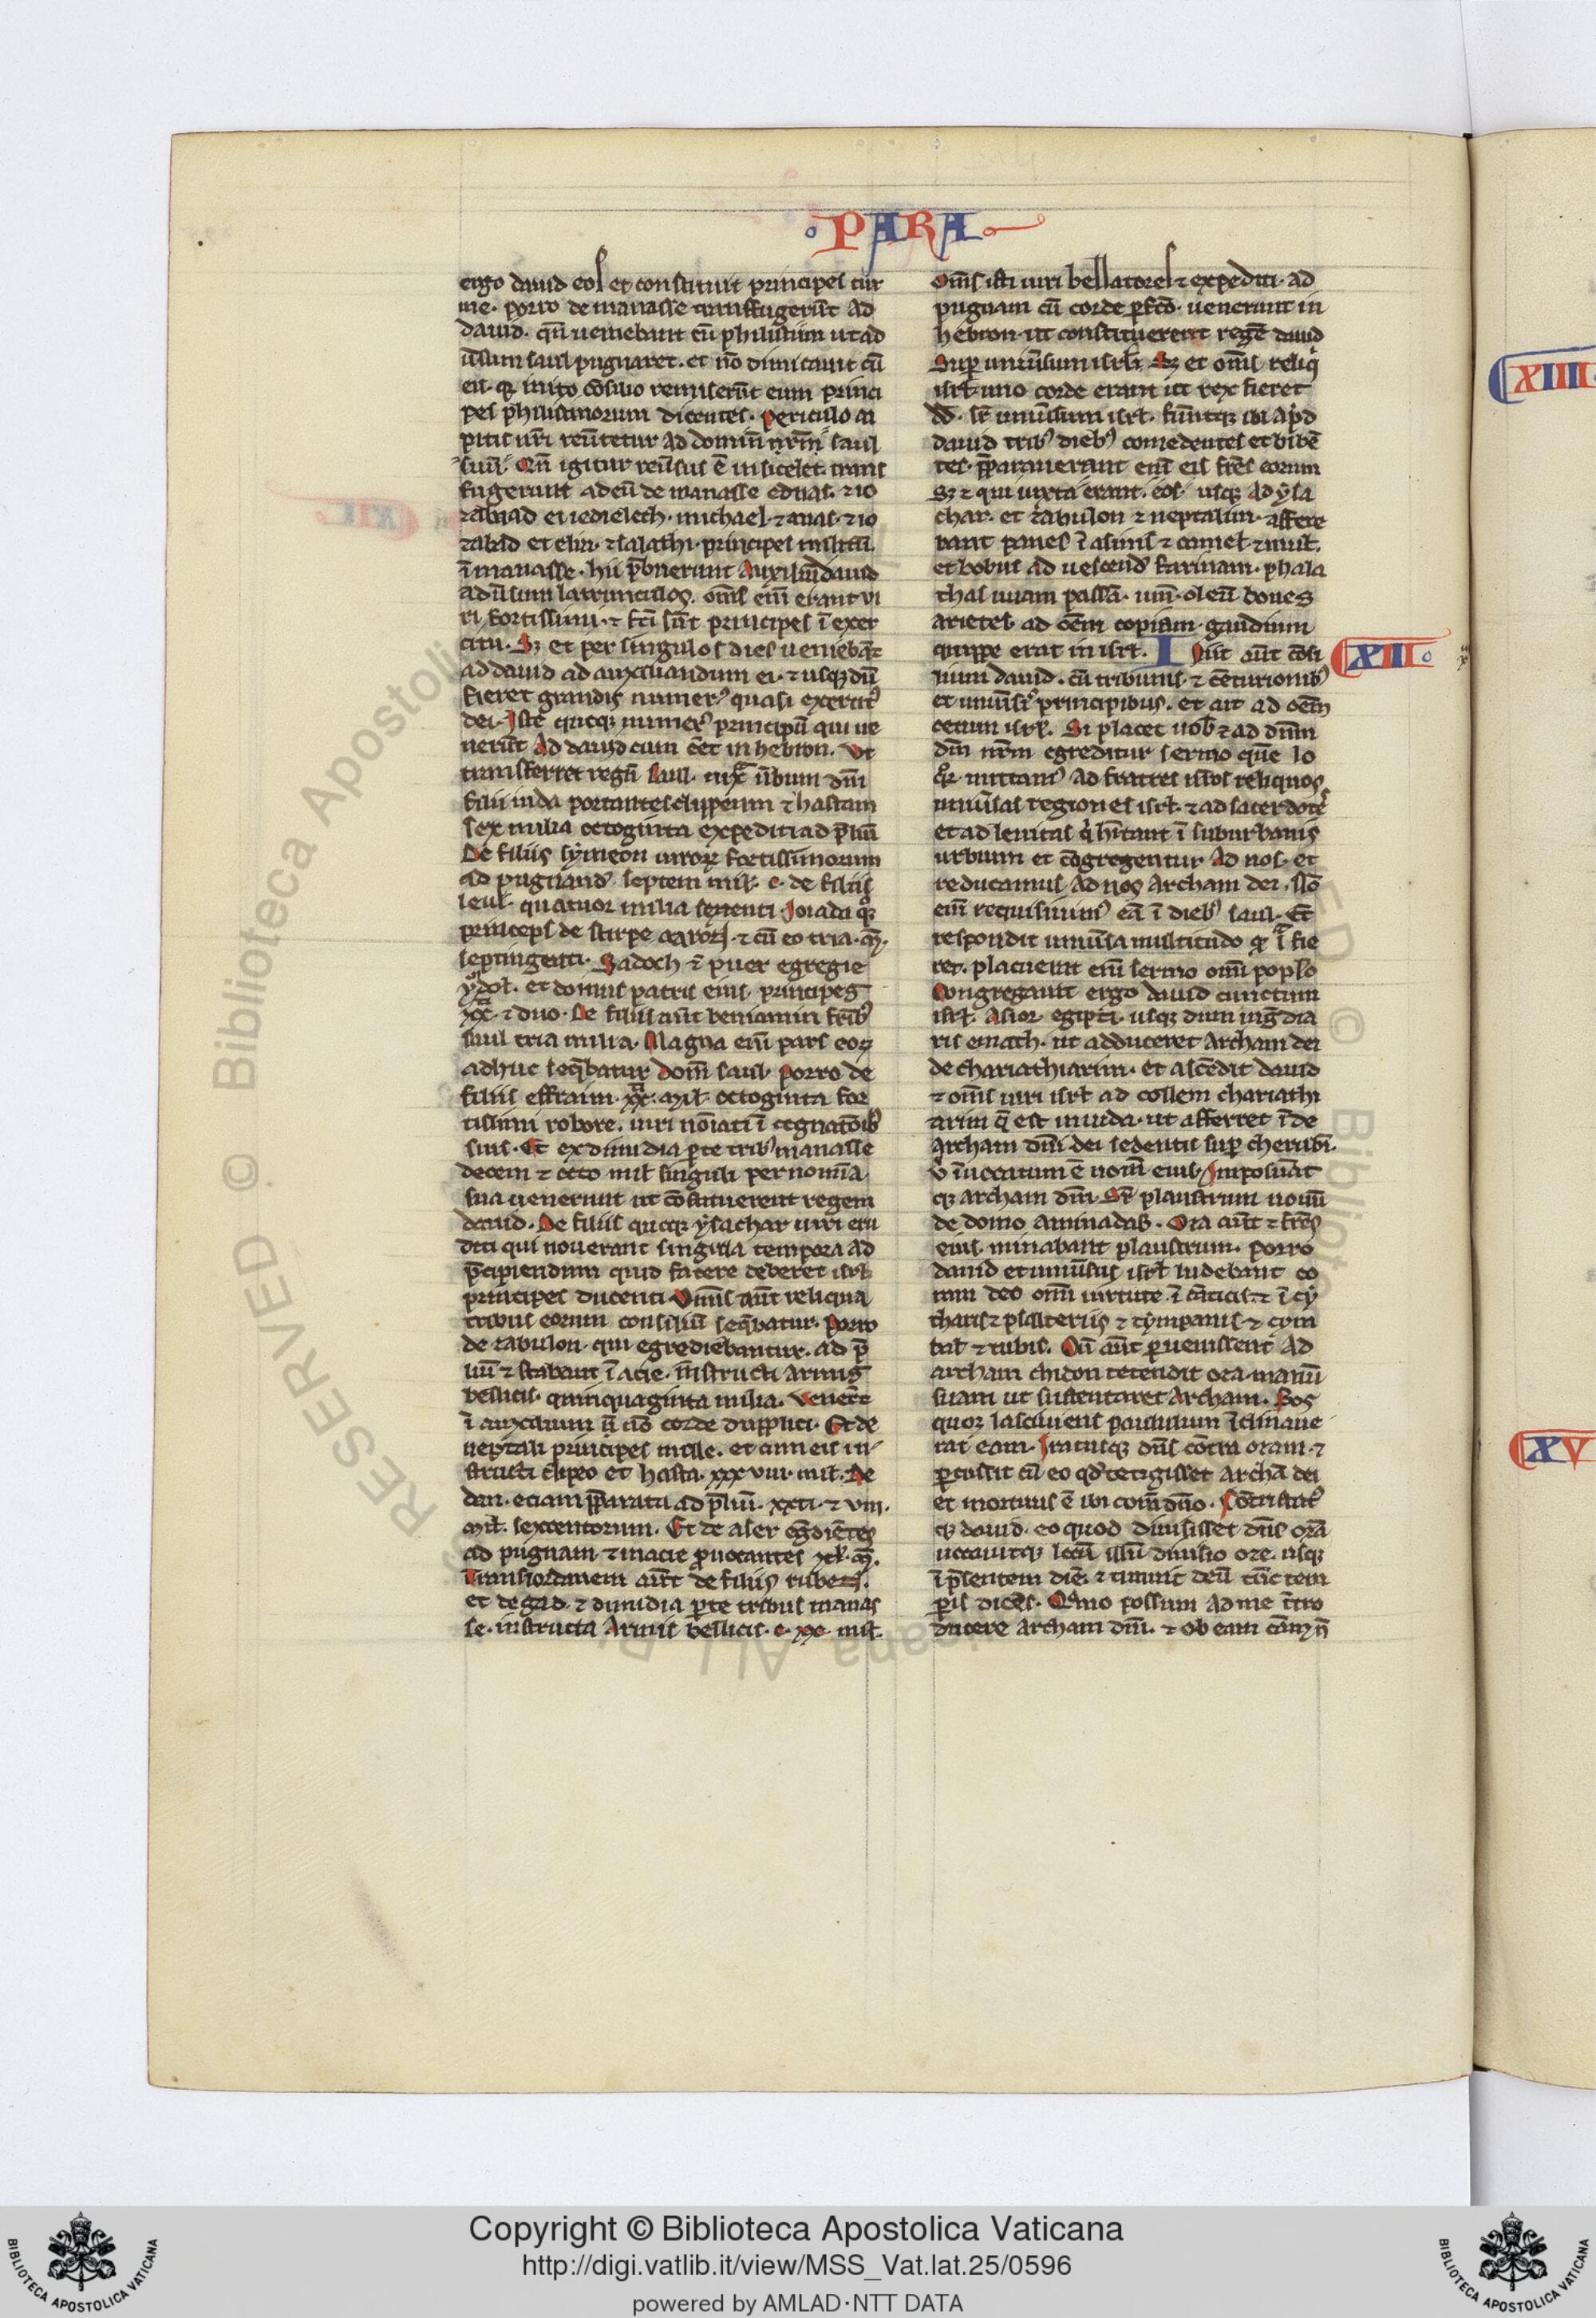 PARA
ergo dauid eos et constituit principes tur
me. porro de manasse transfugerūt ad
dauid. qn̄ ueniebant cū philistiim ut ad
ūsum saul pugnaret. et nō dimicauit cū
eis. qr inito cōsilio remiserūt eum princi
pes philistinorum dicentes. periculo ca
pitis uri reūtetur ad dominū nrm̄ saul
suū. Qn̄ igitur reūsus ē in sicelet. trans
fugerunt ad eū de manasse ednas. ⁊ io
zabad ei iedielech. michael. ⁊ anas. ⁊ io
zabad et eliu. ⁊ salathi. principes militū
ī manasse. hii p̄buerunt auxiliū dauid
ad ūsum latrunculos. om̄s eni erant ui
ri fortissimi. ⁊ fc̄i sūt principes ī exer
citu. Sȝ et per singulos dies uenieba̅t
ad dauid ad auxiliandum ei. ⁊ usqȝ dū
fieret grandis numerꝰ quasi exercitꝰ
dei. Iste quoqȝ numerꝰ principū qui ue
nerūt ad dauid cum ēet in hebron. Ut
transferret regnū saul. iuxta ūbum dn̄i
filii iuda portantes clypeum ⁊ hastam
sex milia octoginta expediti ad p̄liū
De filiis symeon uiroꝝ fortissimorum
ad pugnandū. septem mil. c. de filiis
leui. quatuor milia sexcenti. Ioiada qoȝ
princeps de stirpe aaron. ⁊ cū eo tria. m̄.
septingenti. Sadoch ē puer egregie
ydol. et domus patris eius. principes
xx. ⁊ duo. De filiis aūt beniamin frībꝰ
saul tria milia. Magna eni pars eoꝝ
adhuc seq̄batur domū saul. porro de
filiis effraim. xx. mil. octoginta for
tissimi robore. uiri noīati ī cognatōibꝰ
suis. Et ex dimidia parte tribꝰ manasse
decem ⁊ octo mil. singuli per nomīa
sua uenerunt ut cōstituerent regem
dauid. De filiis quoqȝ ysachar uiri eru
diti qui nouerant singula tempora ad
p̄cipiendum quid facere deberet isrl.
principes ducenti. Omīs aūt reliqua
tribus eorum consiliū seq̄batur. Porro
de zabulon. qui egrediebantur. ad p̄
liū ⁊ stabant ī acie. instructi armis
bellicis. quinquaginta milia. Uenerūt
ī auxilium n̄ ī corde dupplici. Et de
neptali principes mille. et cum eis in
structi clipeo et hasta. xxx uii. mil. De
dan. eciam p̄parati ad p̄liū. xxti. ⁊ viii.
mil. sexcentorum. Et de aser egrediētes
ad pugnam ⁊ in acie prouocantes xl. m̄.
Trans iordanem aūt de filiis ruben.
et de gad. ⁊ dimidia parte tribus manas
se. instructa armis bellicis. c. xx. mil.
Om̄s isti uiri bellatores ⁊ expediti. ad
pugnam cū corde pfc̄o. uenerunt in
hebron. ut constituerent regē dauid
super uniūsum isrl. Sȝ et om̄s reliqi
isrl. uno corde erant ut rex fieret
dd. sr uniūsum isrl. fuerūtqȝ ibi apud
dauid tribꝰ diebꝰ comedentes et bibē
tes. p̄parauerant eni eis frēs eorum
Sȝ ⁊ qui iuxta erant. eos. usqȝ ad ysa
char. et zabulon ⁊ neptalim. affere
bant panes ī asinis ⁊ camel. ⁊ mul.
et bobus ad uescendū farinam. phala
thas uuam passā. uinū. oleū. boues
arietes. ad oēm copiam. gaudium
quippe erat in isrl. Iniit aūt cōsi
XII
lium dauid. cū tribunis. ⁊ cēturionibꝰ
et uniūsis principibus. et ait ad oēm
cetum isrl. Si placet uob ⁊ ad dn̄m
dm̄ nrm̄ egreditur sermo quē lo
qor. mittamꝰ ad fratres nr̄os reliquos
uniūsas regiones isrl. ⁊ ad sacerdotes
et ad leuitas qi hītant ī suburbanis
urbium et cōgregentur ad nos. et
reducamus ad nos archam dei. Nō
eni requisiuimꝰ eā ī diebꝰ saul. Et
respondit uniūsa multitudo qr ita fie
ret. placuerat eni sermo omni poplo
Congregauit ergo dauid cunctum
isrl. a sior egipti. usqȝ dum ingdia
ris emath. ut adduceret archam dei
de chariathiarim. et ascēdit dauid
⁊ om̄s uiri isrl ad collem chariathi
arim q̄ est in iuda. ut afferret īde
archam dn̄i dei sedentis sup cherubī.
ū īuocatum ē nomē eius. Imposuerūt
qȝ archam dn̄i. sr plaustrum nouū
de domo aminadab. Oza aūt ⁊ frēs
eius. minabant plaustrum. porro
dauid et uniūsus isrl ludebant co
ram deo omni uirtute. ī cāticis ⁊ ī cy
tharis ⁊ psalteriis ⁊ tympanis ⁊ cym
bal. ⁊ tubis. Cū aūt puenissent ad
archam chidon tetendit oza. manū
suam ut sustentaret archam. Bos
quoȝ lasciuiens paululum īclinaue
rat eam. Iratusqȝ dn̄s cōtra ozam. ⁊
pcussit eū eo qd tetigisset archā dei
et mortuus ē ibi coram dn̄o. Cōtristatꝰ
qȝ dauid. eo quod diuisisset dn̄s ozā
uocauitqȝ locū illū diuisio oze. usqȝ
ī p̄sentem diē. ⁊ timuit deū tūc tem
poris dicēs. Quomo possum ad me ītro
ducere archam dn̄i. ⁊ ob eam cām n̄
XIIII
XV
RESERVED © Biblioteca Apostolica Vaticana ALL R
Copyright © Biblioteca Apostolica Vaticana
http://digi.vatlib.it/view/MSS_Vat.lat.25/0596
powered by AMLAD·NTT DATA
BIBLIOTECA APOSTOLICA VATICANA
BIBLIOTECA APOSTOLICA VATICANA